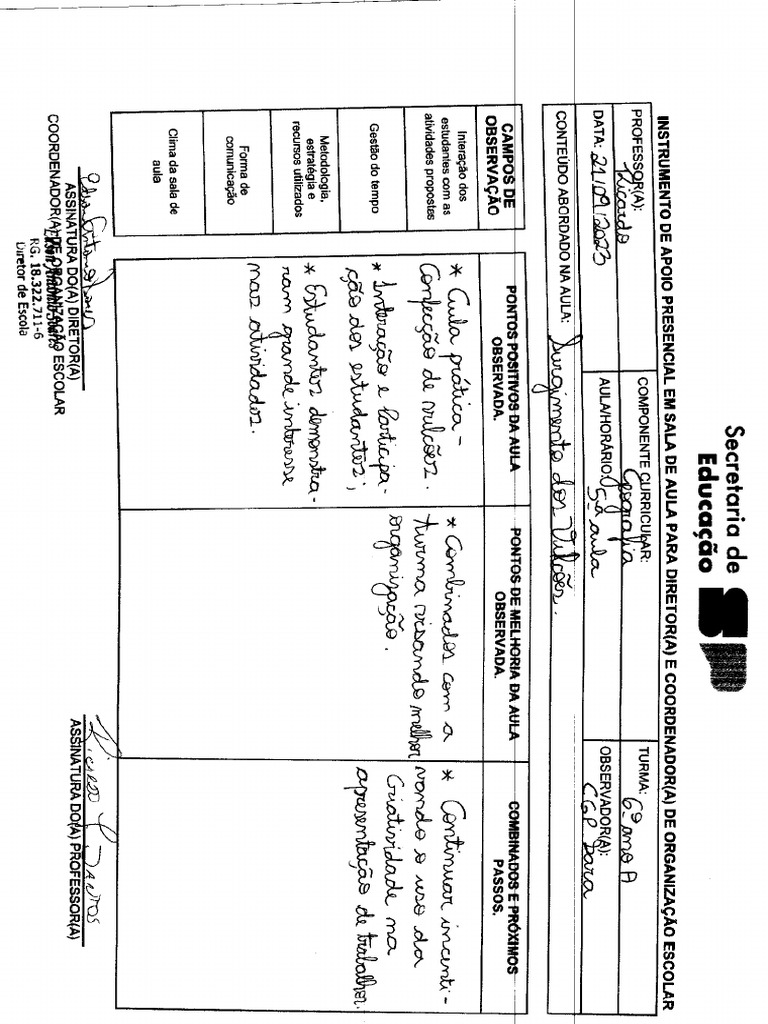 Secretaria de
Educação
SP
INSTRUMENTO DE APOIO PRESENCIAL EM SALA DE AULA PARA DIRETOR(A) E COORDENADOR(A) DE ORGANIZAÇÃO ESCOLAR
PROFESSOR(A): Ricardo
COMPONENTE CURRICULAR: Geografia
TURMA: 6º ano A
DATA: 21/09/2023
AULA/HORÁRIO: 5ª aula
OBSERVADOR(A): CGP Dara
CONTEÚDO ABORDADO NA AULA: Surgimento dos Vulcões.
CAMPOS DE
OBSERVAÇÃO
Interação dos
estudantes com as
atividades propostas
Gestão do tempo
Metodologia,
estratégia e
recursos utilizados
Forma de
comunicação
Clima da sala de
aula
PONTOS POSITIVOS DA AULA
OBSERVADA.
* Aula prática -
Confecção de vulcões.
* Interação e Participa-
ção dos estudantes;
* Estudantes demonstra-
ram grande interesse
nas atividades.
PONTOS DE MELHORIA DA AULA
OBSERVADA.
* Combinados com a
turma visando melhor
organização.
COMBINADOS E PRÓXIMOS
PASSOS.
* Continuar incenti-
vando o uso da
Criatividade na
apresentação de trabalhos.
ASSINATURA DO(A) DIRETOR(A)
COORDENADOR(A) DE ORGANIZAÇÃO ESCOLAR
RG. 18.322.711-6
Diretor de Escola
Ricardo Santos
ASSINATURA DO(A) PROFESSOR(A)